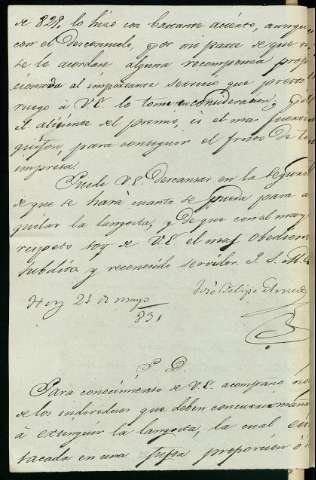 de 829, lo hizo con bastante acierto, aunque
con el desconsuelo, por mi parte de que no
se le acordase alguna recompensa propor
cionada al importante servicio que presto
ruego à V.E. lo tome en consideracion, 
el aliciente del premio, es el mas
para conseguir el fruto de la
impresa.
Puede V.E. descansar en la seguridad
de que se hará cuanto se pueda para a
quilar la langosta, y de que con el mayor
respeto soy de V.E. el mas obediente
subdito y reconocido servidor
José Felipe
Hoy 23 de mayo
/831
P. D.
Para conocimiento de V.E. acompaño
de los individuos que deben concurrir mañana
à extinguir la langosta, la cual
atacada en una justa proporcion